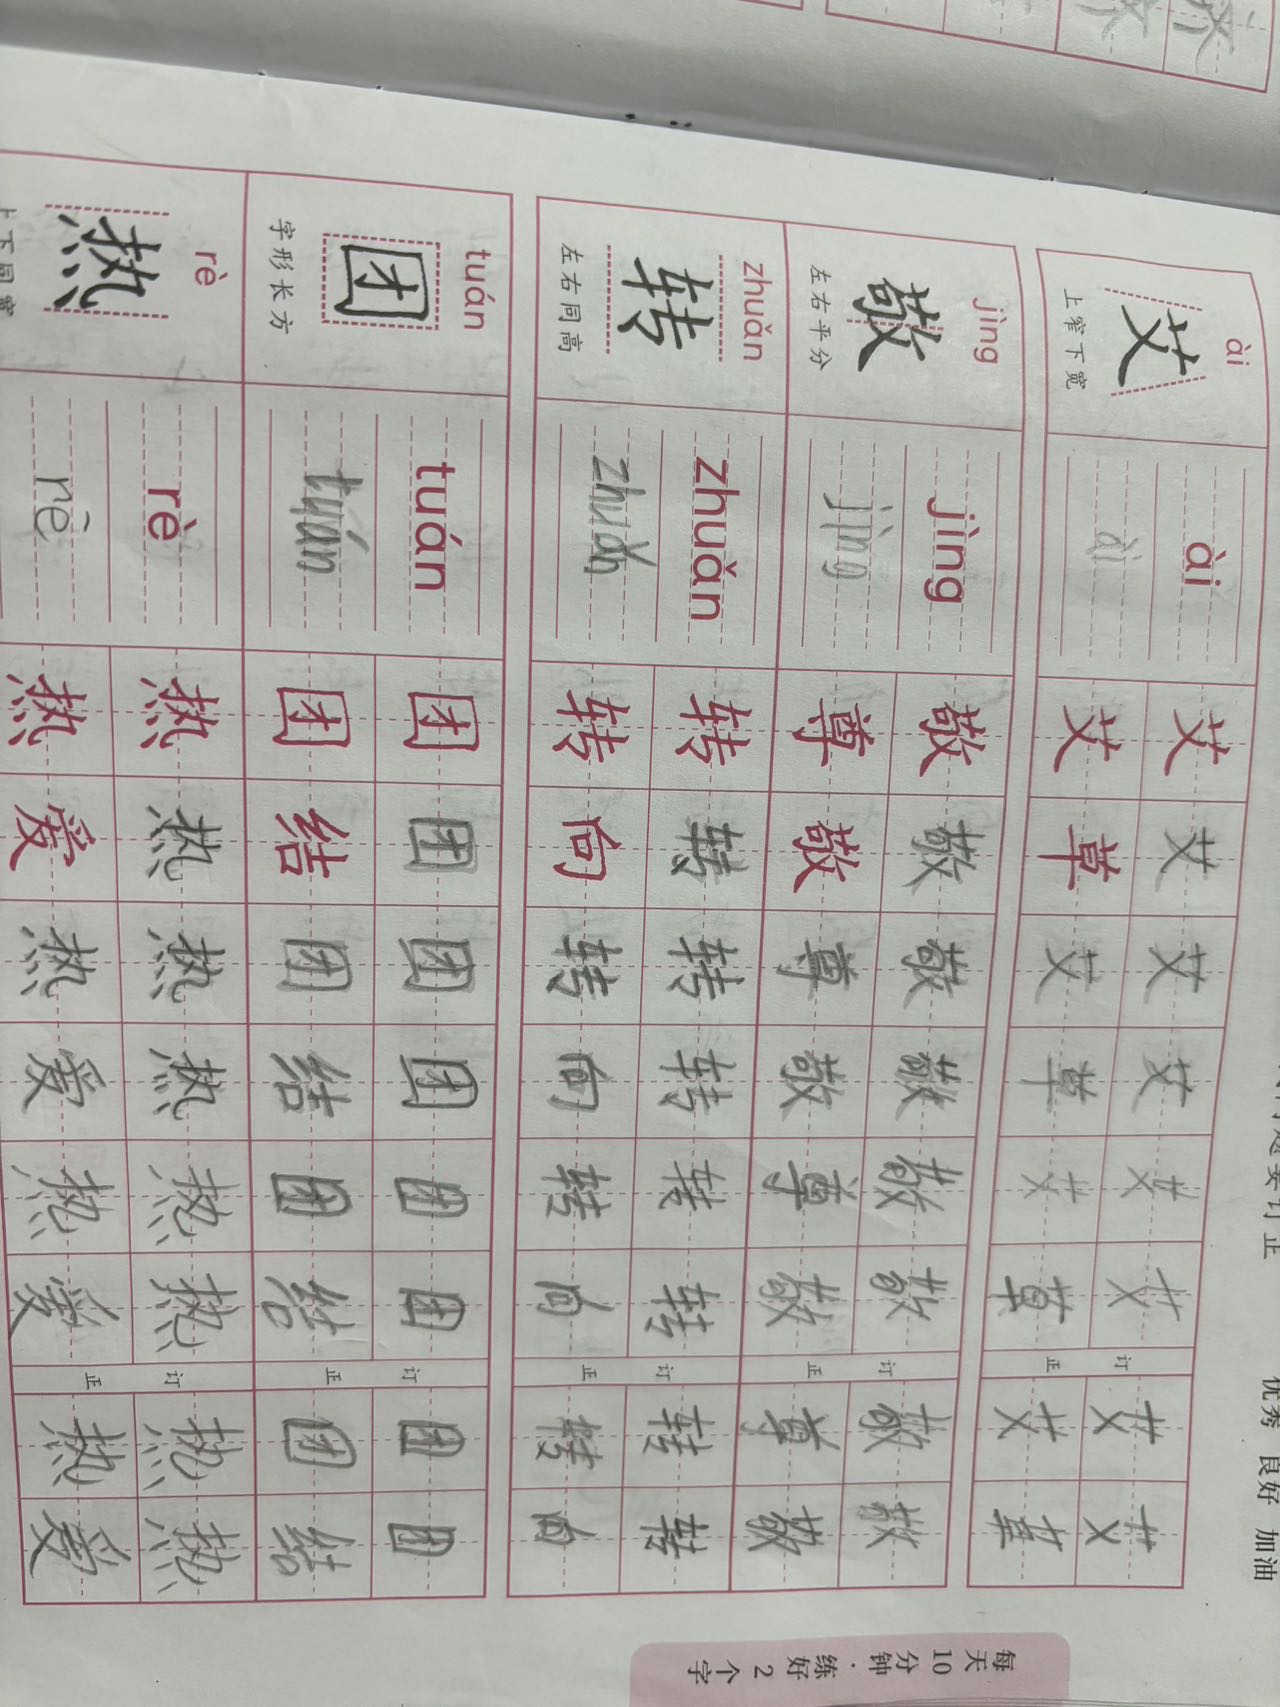 优秀 良好 加油
ài
艾
上窄下宽
ài
ài
艾 艾 艾 艾 艾 艾 订 艾 艾
艾 草 艾 草 艾 草 正 艾 草
jìng
敬
左右平分
jìng
jìng
敬 敬 敬 敬 敬 敬 订 敬 敬
尊 敬 尊 敬 尊 敬 正 尊 敬
zhuǎn
转
左右同高
zhuǎn
zhuǎn
转 转 转 转 转 转 订 转 转
转 向 转 向 转 向 正 转 向
tuán
团
字形长方
tuán
tuán
团 团 团 团 团 团 订 团 团
团 结 团 结 团 结 正 团 结
rè
热
上下同宽
rè
rè
热 热 热 热 热 热 订 热 热
热 爱 热 爱 热 爱 正 热 爱
每天10分钟·练好2个字